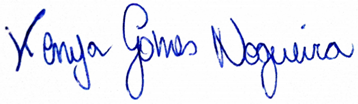 Kenya Gomes Nogueira